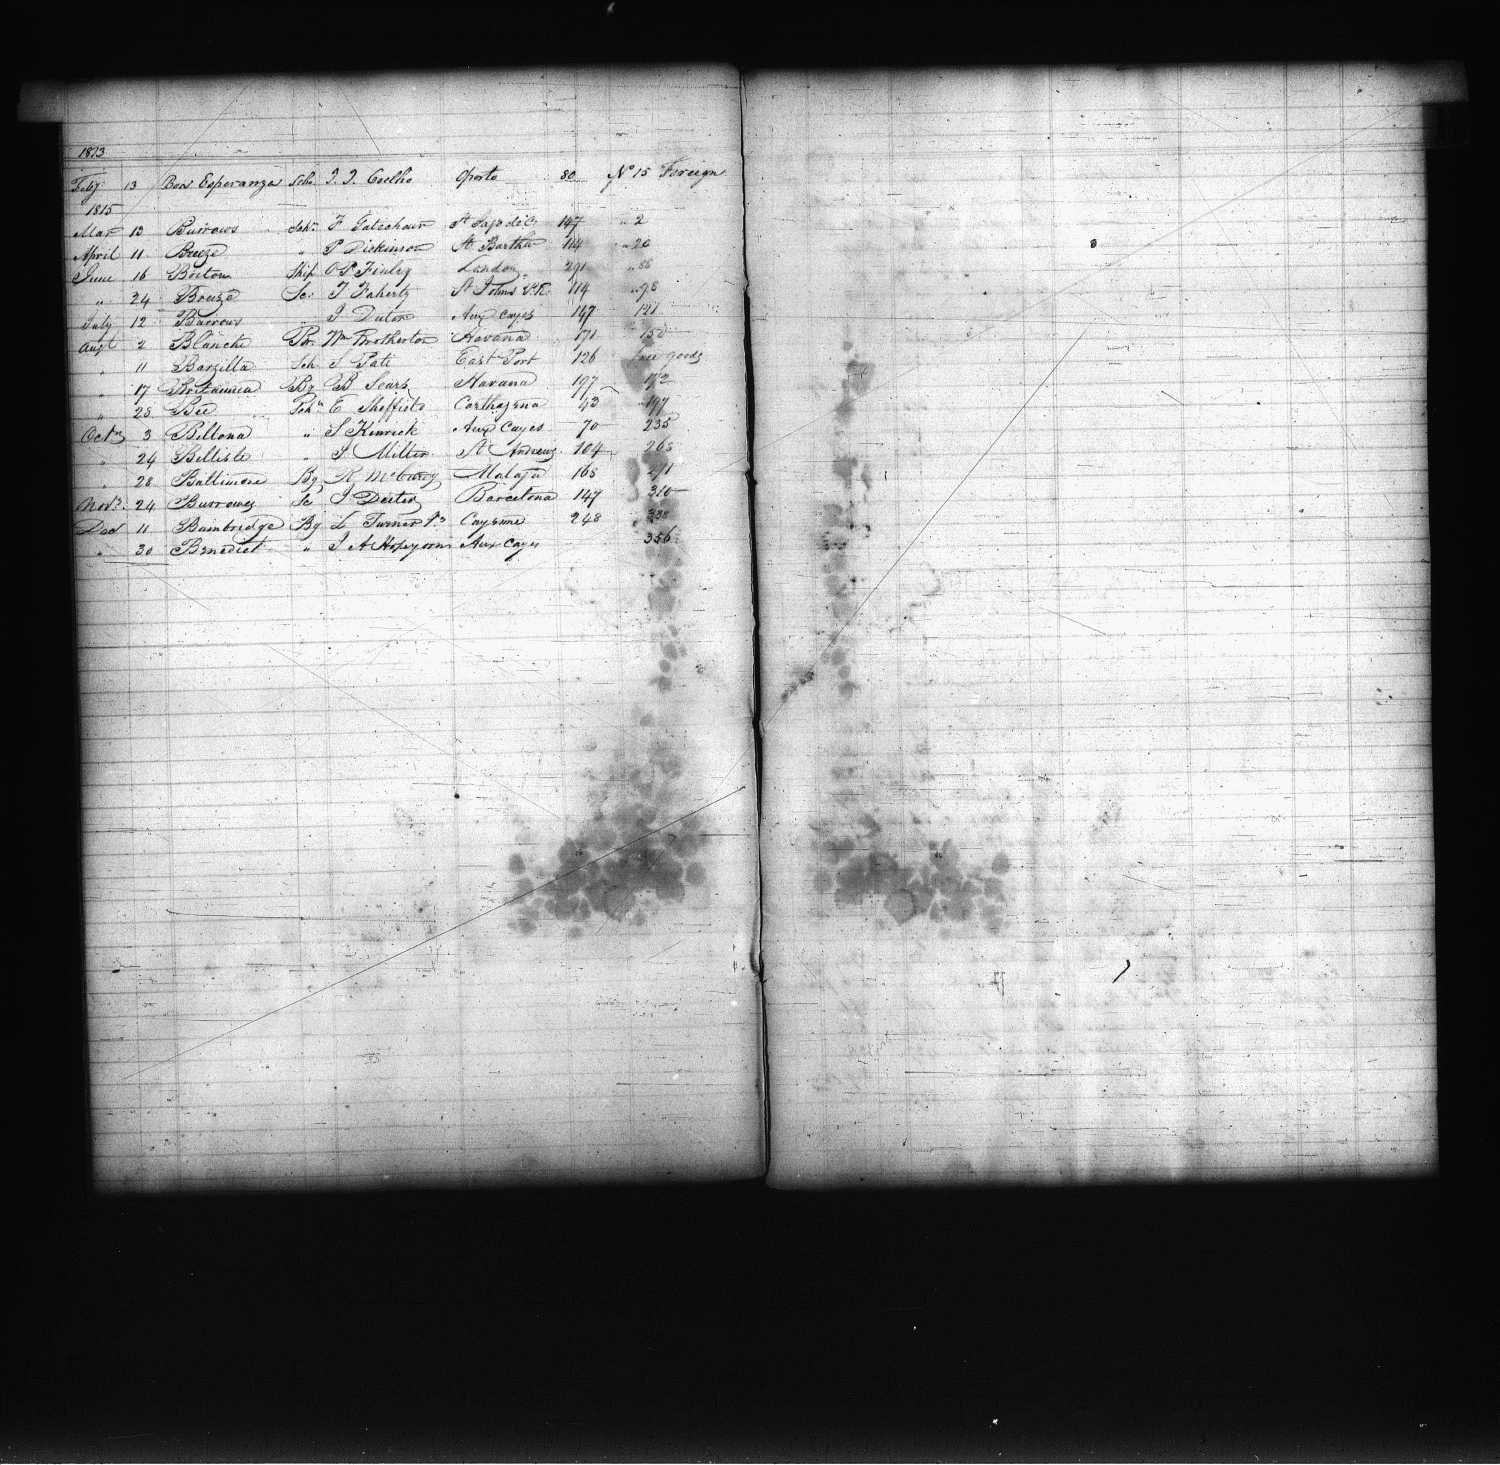 1813
Feby 13 Boa Esperanza Scho. J. J. Coelho Oporto 80 No 15 Foreign
1815
Mar 13 Burrows Schr. F 147 " 2
April 11 Breeze " P Dickinson St Bartho 114 " 20
June 16 Boston Ship O P Finley London 291 " 88
" 24 Breeze Sc. T Faherty St Johns P.R. 114 " 98
July 12 Burrows " J Aux cayes 147 121
Augt 2 Blanche Br. Wm Brotherton Havana 171 150
" 11 Barzilla Sch East Port 126 free goods
" 17 Britannia Bg B Sears Havana 197 172
" 28 Bee Schr E Sheffield Carthagena 43 197
Octr 3 Bellona " S Kinrick Aux Cayes 70 235
" 24 Bellisle " J Miller St Andrews 104 265
" 28 Baltimore Bg R Malaga 165 271
Novr. 24 Burrows Sc J Dexter Barcelona 147 310
Dec 11 Bambridge Bg L Turner Cayenne 248 338
" 30 Benedict " J A Aux Cayes 356